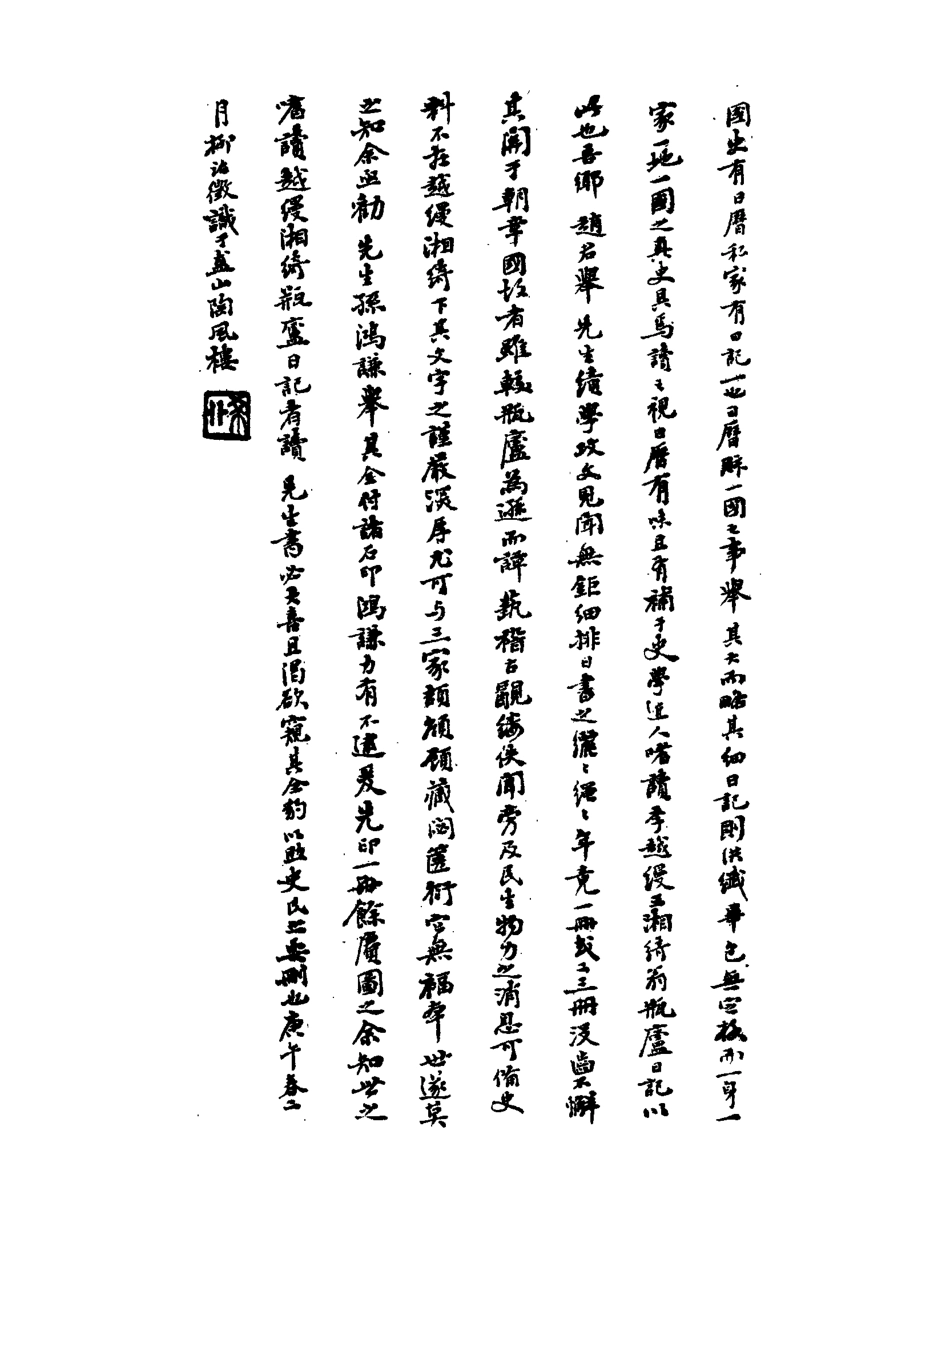 國史有日曆私家有日記一也日曆賅一國之事舉其大而略其細日記則洪纖畢包無定格而一身一
家一地一國之真史具焉讀之視日曆有味且有補于史學近人嗜讀李越縵王湘綺翁瓶廬日記以
此也吾鄉趙君舉先生績學攻文見聞無鉅細排日書之纚〻繩〻年竟一冊或二三冊沒齒不懈
其關于朝章國故者雖較瓶廬為遜而譚埶稽古覼縷佚聞旁及民生物力之消息可備史
料不在越縵湘綺下其文字之謹嚴淡厚尤可与三家頡頏顧藏閟篋衍官無福卒世遂莫
之知余亟勸先生孫鴻謙舉其全付諸石印鴻謙力有不逮爰先印一冊餘賡圖之余知世之
嗜讀越縵湘綺瓶廬日記者讀先生書必大喜且渴欲窺其全豹以斷史氏之要刪也庚午春二
月柳詒徵識于盋山陶風樓